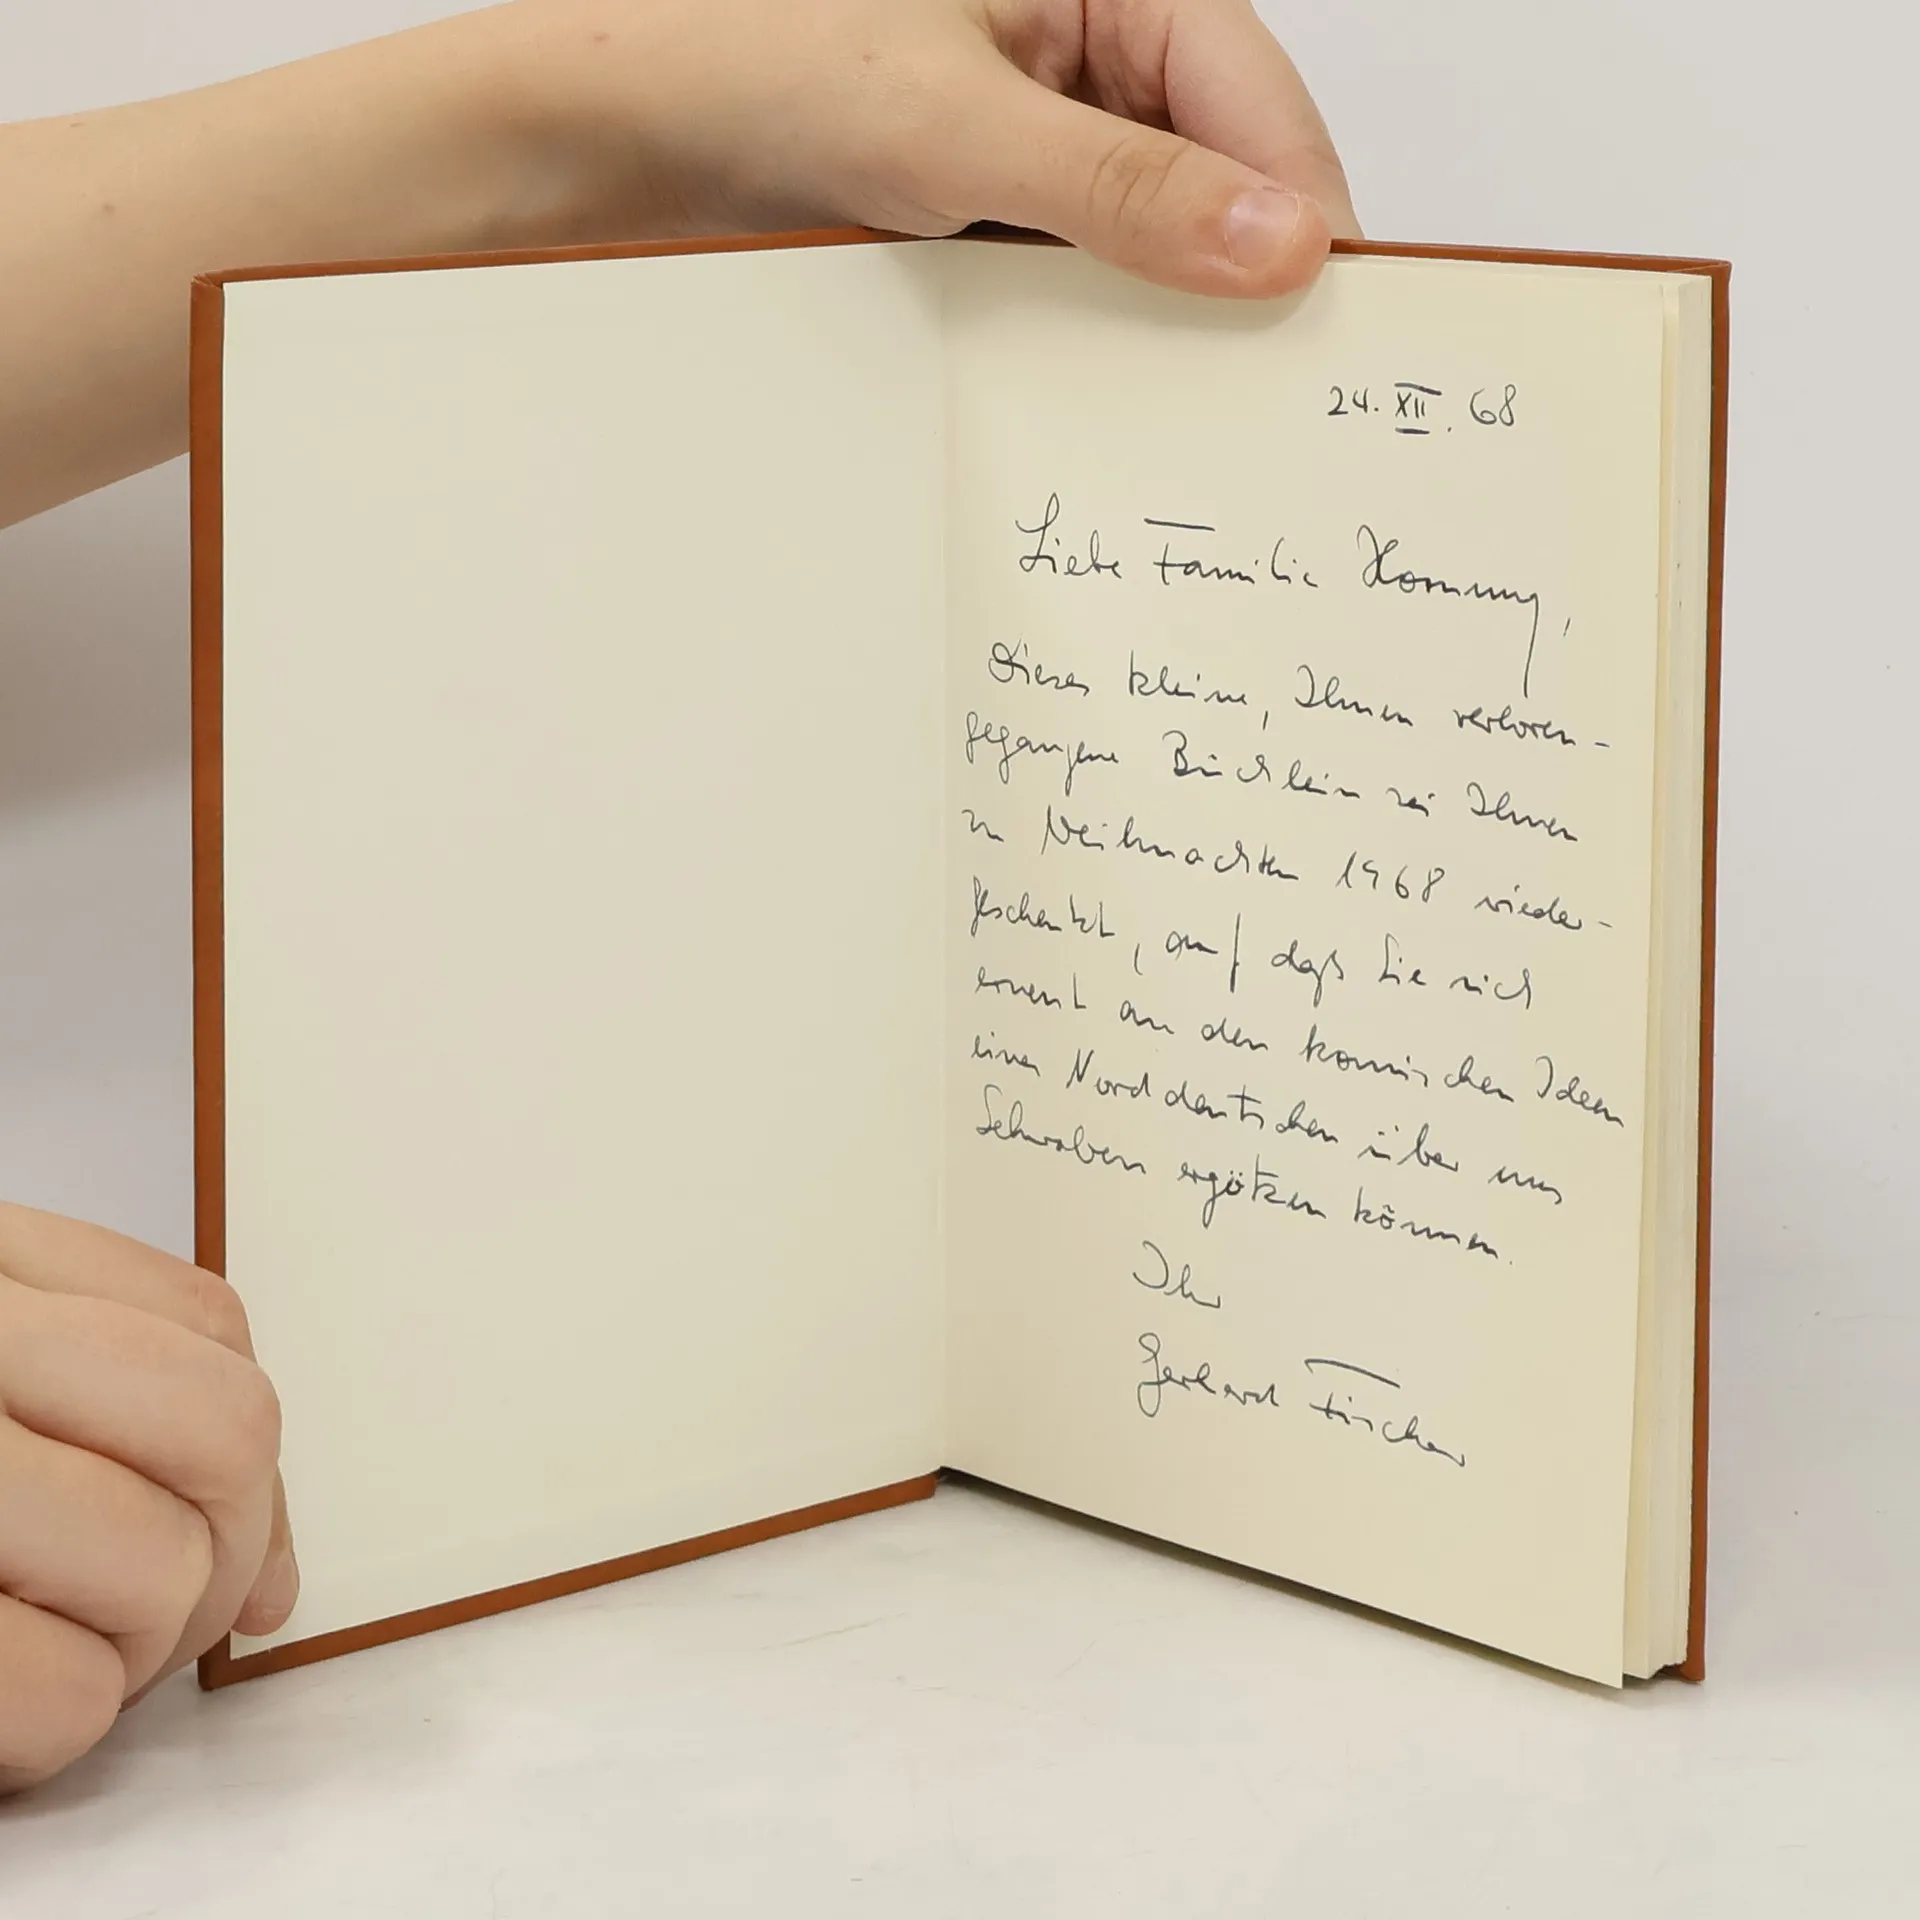 24. XII. 68
Liebe Familie Hornung,
Dieses kleine, Ihnen verloren-
gegangene Büchlein sei Ihnen
zu Weihnachten 1968 wieder-
geschenkt, auf daß Sie sich
erneut an den komischen Ideen
eines Norddeutschen über uns
Schwaben ergötzen können.
Ihr
Gerhard Fischer